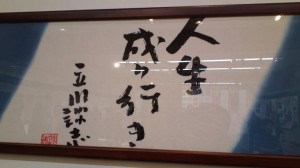 人生
成り行き
立川談志